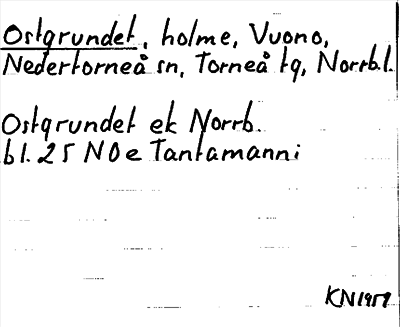 Ostgrundet, holme, Vuono,
Nedertorneå sn, Torneå tg, Norrb.l.
Ostgrundet ek Norrb.
bl. 25 NO e Tantamanni
KN 1959